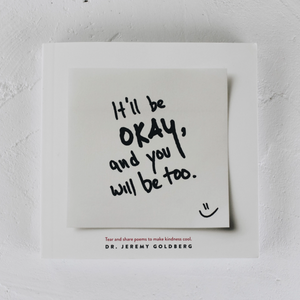 It'll be
OKAY,
and you
will be too.
Tear and share poems to make kindness cool.
DR. JEREMY GOLDBERG